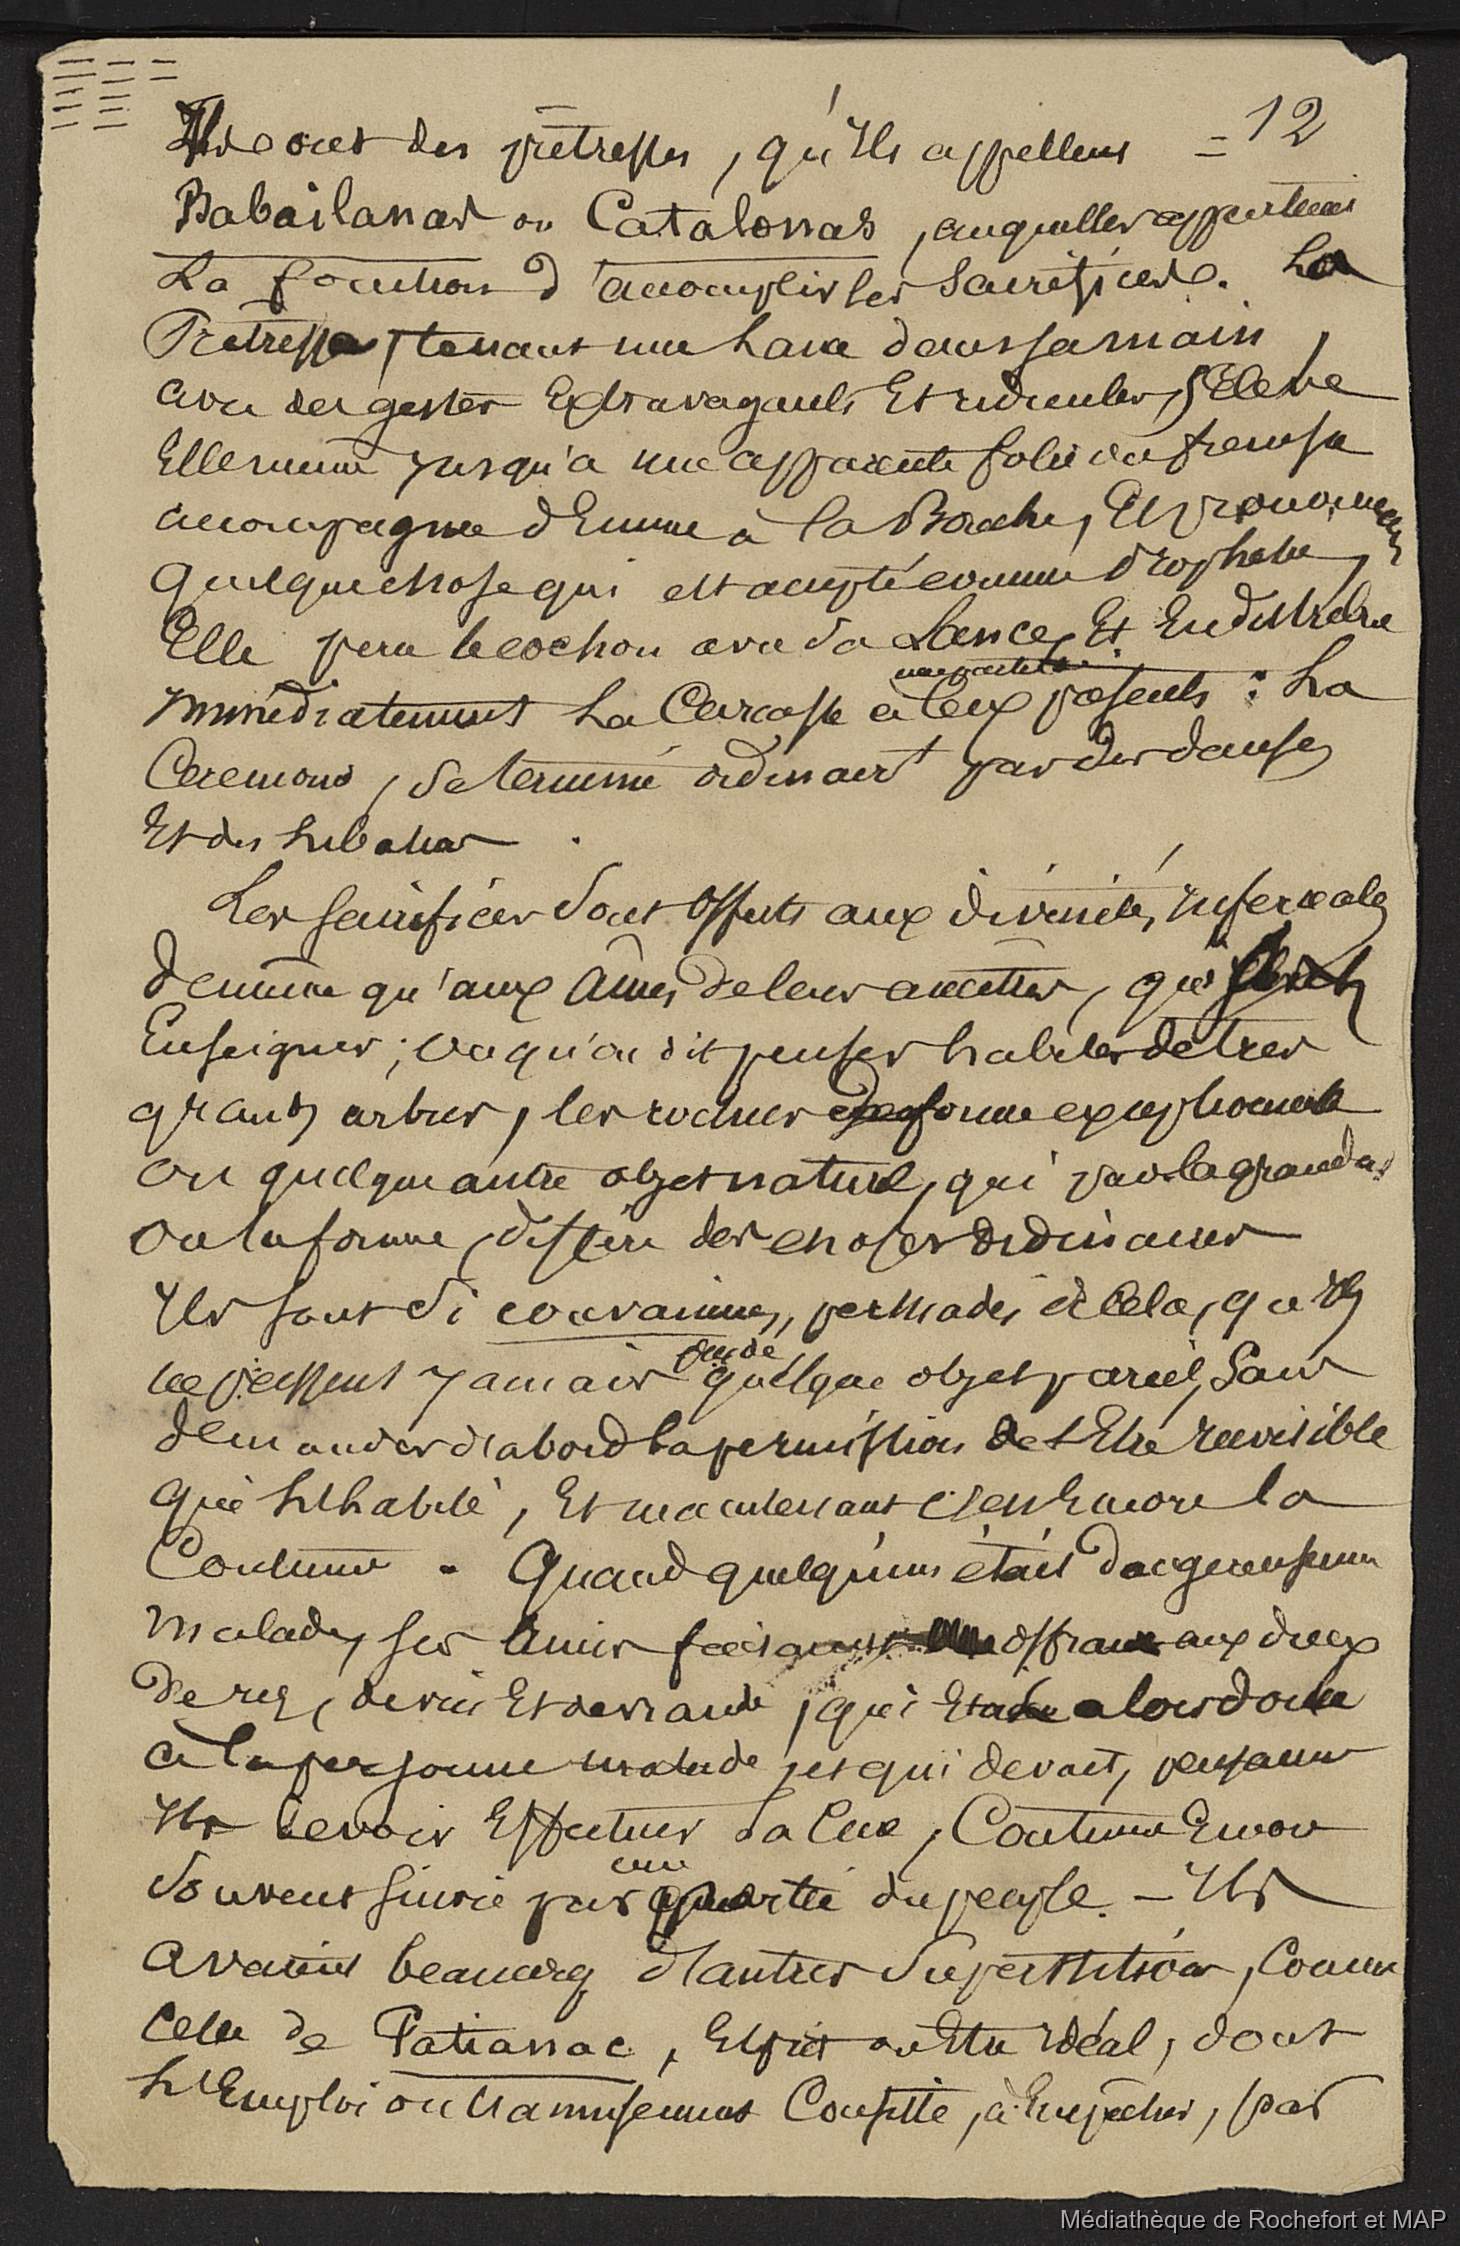 = 12
Ils ont des prêtresses, qu'Ils appellent
Babailanas ou Catalonas, auquelles appartient
La fonction d'accomplir les Sacrifices. La
Prêtresse, tenant une Lance dans sa main,
avec des gestes Extravagants Et ridicules, s'Elève
Elle même jusqu'à une apparente folie ou frenesie
accompagnée d'Ecume à la Bouche, Et prononçant
quelque chose qui est accepté comme Prophetie,
Elle perce le cochon avec sa Lance, Et En distribue
immédiatement La Carcasse aux présents : La
Ceremonie, se termine ordinairt par des danses
Et des Libations.
Les Sacrifices Sont Offerts aux divinités Infernales
de même qu'aux âmes de leurs ancêtres, que
Enseignes ; ou qu'on dit penser habiter de tres
grands arbres, les rochers de forme exceptionnelle
ou quelque autre objet naturel, qui par la grandeur
ou la forme, diffère des choses ordinaires
Ils sont si convaincus, persuadés de Cela, qu'Ils
ne passent Jamais près de quelque objet pareil, Sans
demander d'abord la permission de l'Etre invisible
qui L'habite, Et maintenant c'est Encore la
Coutume. Quand quelqu'un était dangereusement
malade, ses Amis faisaient une offrande aux dieux
de riz, de vin Et de viande, qui Etait alors donnée
à la personne malade, et qui devait, pensaient
Ils devoir Effectuer sa Cure, Coutume Encore
Souvent Suivie par une partie du peuple. — Ils
avaient beaucoup d'autres Superstitions, Comme
Celle de Patianac, Esprit ou Etre Idéal, dont
L'Emploi ou l'amusement Consiste, à Empêcher, par
Médiathèque de Rochefort et MAP